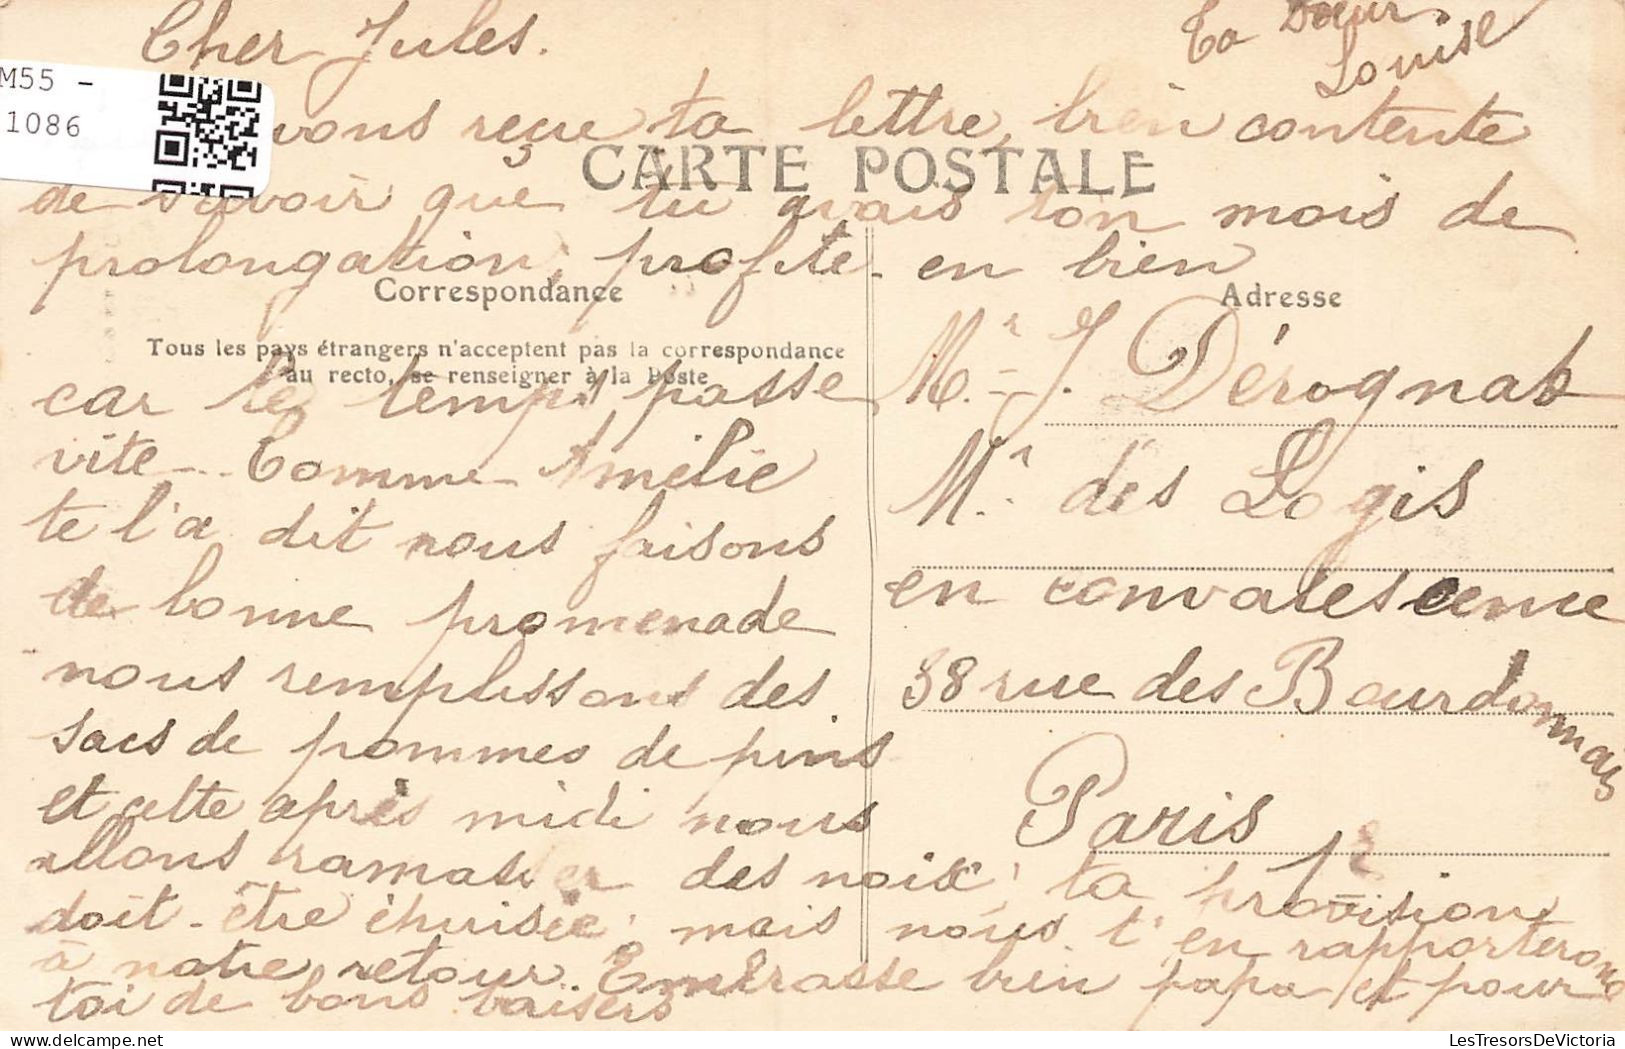 Cher Jules.
Ta Sœur
Louise
M55 -
1086
avons reçue ta lettre, bien contente
CARTE POSTALE
de savoir que tu avais ton mois de
prolongation, profite-en bien
Correspondance
Adresse
Tous les pays étrangers n'acceptent pas la correspondance
au recto, se renseigner à la Poste
car le temps passe
vite. Comme Amélie
te l'a dit nous faisons
de bonne promenade
nous remplissons des
sacs de pommes de pins
et cette après midi nous
allons ramasser des noix, ta provision
doit-être épuisée, mais nous t'en rapporterons
à notre retour. Embrasse bien papa et pour
toi de bons baisers
Mr J. Dérognat
Mal des Logis
en convalescence
38 rue des Bourdonnais
Paris 1r
LesTresorsDeVictoria